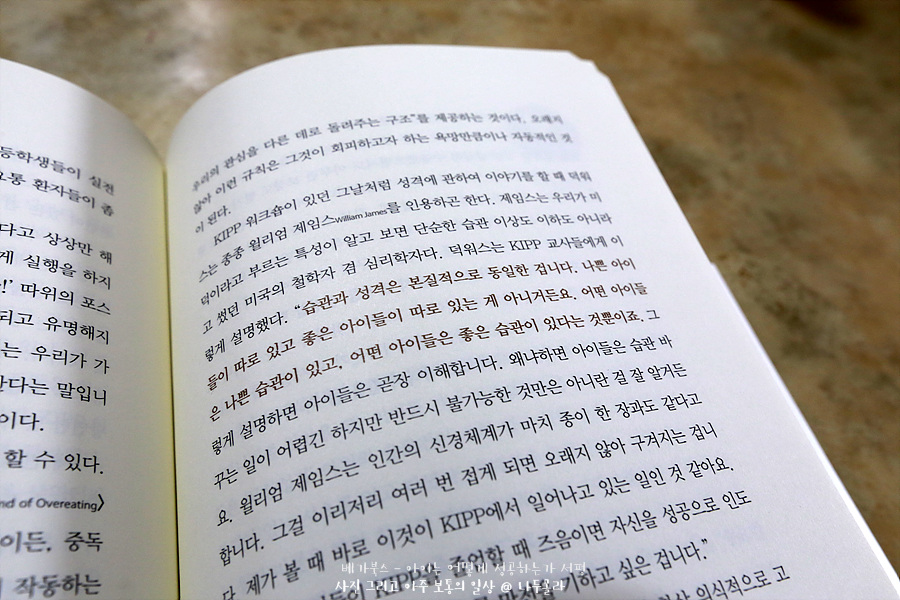 등학생들이 실전
요통 환자들이 좀
다고 상상만 해
게 실행을 하지
!’ 따위의 포스
되고 유명해지
는 우리가 가
한다는 말입니
이다.
할 수 있다.
nd of Overeating〉
이든, 중독
작동하는
우리의 관심을 다른 데로 돌려주는 구조”를 제공하는 것이다. 오래지
않아 이런 규칙은 그것이 회피하고자 하는 욕망만큼이나 자동적인 것
이 된다.
KIPP 워크숍이 있던 그날처럼 성격에 관하여 이야기를 할 때 덕워
스는 종종 윌리엄 제임스William James를 인용하곤 한다. 제임스는 우리가 미
덕이라고 부르는 특성이 알고 보면 단순한 습관 이상도 이하도 아니라
고 썼던 미국의 철학자 겸 심리학자다. 덕워스는 KIPP 교사들에게 이
렇게 설명했다. “습관과 성격은 본질적으로 동일한 겁니다. 나쁜 아이
들이 따로 있고 좋은 아이들이 따로 있는 게 아니거든요. 어떤 아이들
은 나쁜 습관이 있고, 어떤 아이들은 좋은 습관이 있다는 것뿐이죠. 그
렇게 설명하면 아이들은 곧장 이해합니다. 왜냐하면 아이들은 습관 바
꾸는 일이 어렵긴 하지만 반드시 불가능한 것만은 아니란 걸 잘 알거든
요. 윌리엄 제임스는 인간의 신경체계가 마치 종이 한 장과도 같다고
합니다. 그걸 이리저리 여러 번 접게 되면 오래지 않아 구겨지는 겁니
다. 제가 볼 때 바로 이것이 KIPP에서 일어나고 있는 일인 것 같아요.
들이 KIPP를 졸업할 때 즈음이면 자신을 성공으로 인도
하고 싶은 겁니다.”
의식적으로 고
베가북스 - 아이는 어떻게 성공하는가 서평
사진 그리고 아주 보통의 일상 @ 나투홀리